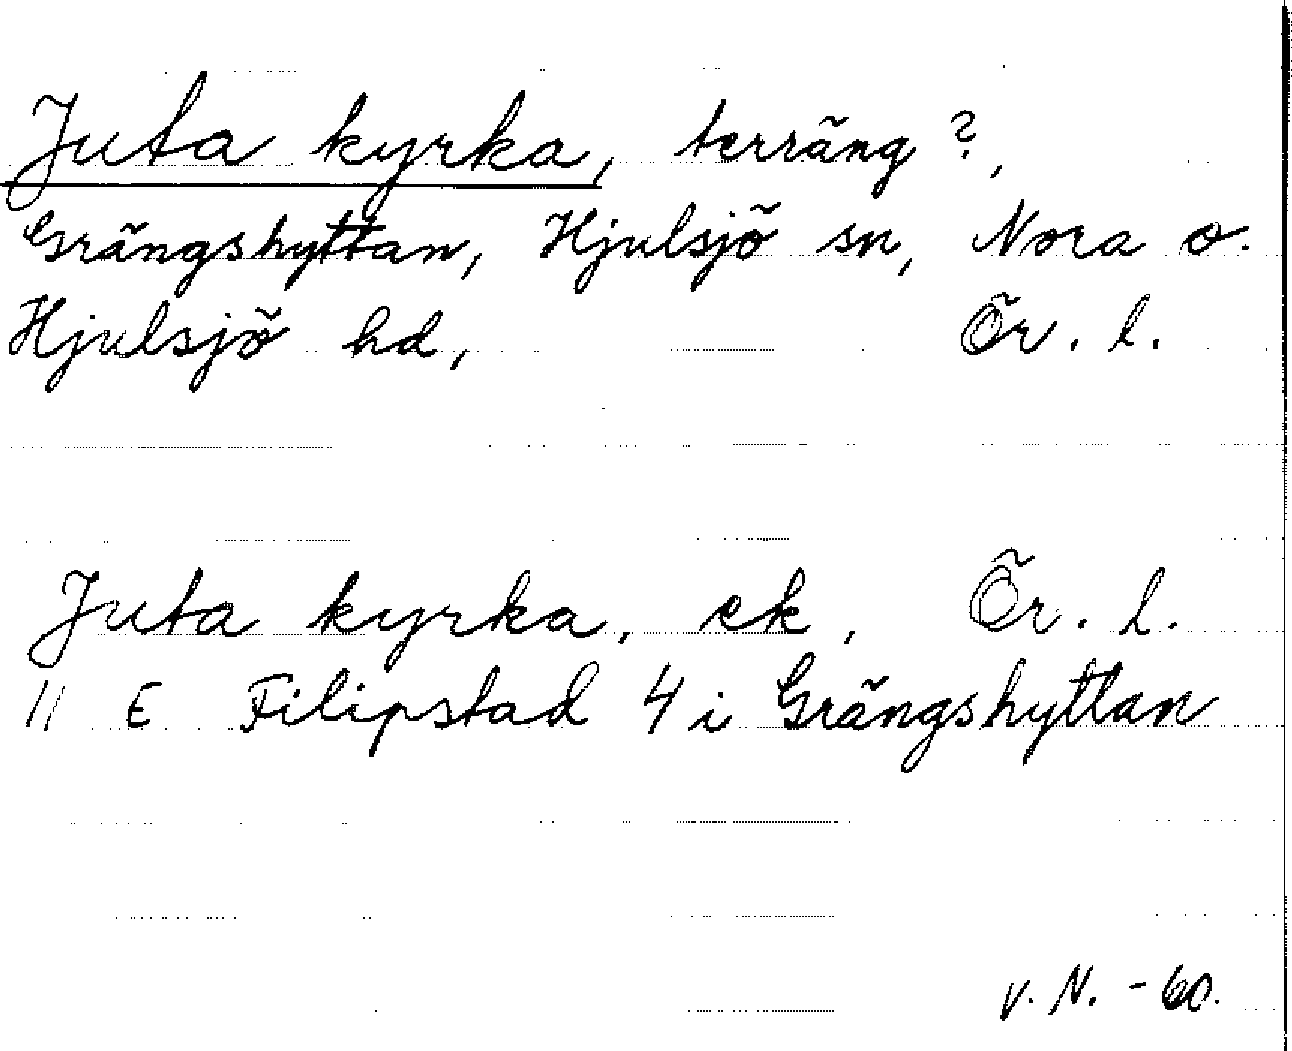 Juta kyrka, terräng?,
Grängshyttan, Hjulsjö sn, Nora o.
Hjulsjö hd, Ör. l.
Juta kyrka, ek, Ör. l.
11 E Filipstad 4 i Grängshyttan
V. N. - 60.